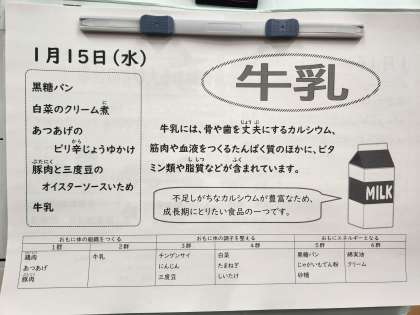 1月15日(水)
牛乳
黒糖パン
白菜のクリーム煮
あつあげの
ピリ辛じょうゆかけ
豚肉と三度豆の
オイスターソースいため
牛乳
牛乳には、骨や歯を丈夫にするカルシウム、
筋肉や血液をつくるたんぱく質のほかに、ビタ
ミン類や脂質などが含まれています。
不足しがちなカルシウムが豊富なため、
成長期にとりたい食品の一つです。
MILK
おもに体の組織をつくる おもに体の調子を整える おもにエネルギーとなる
1群 2群 3群 4群 5群 6群
鶏肉 牛乳 チンゲンサイ 白菜 黒糖パン 綿実油
あつあげ にんじん たまねぎ じゃがいもでん粉 クリーム
豚肉 三度豆 しいたけ 砂糖